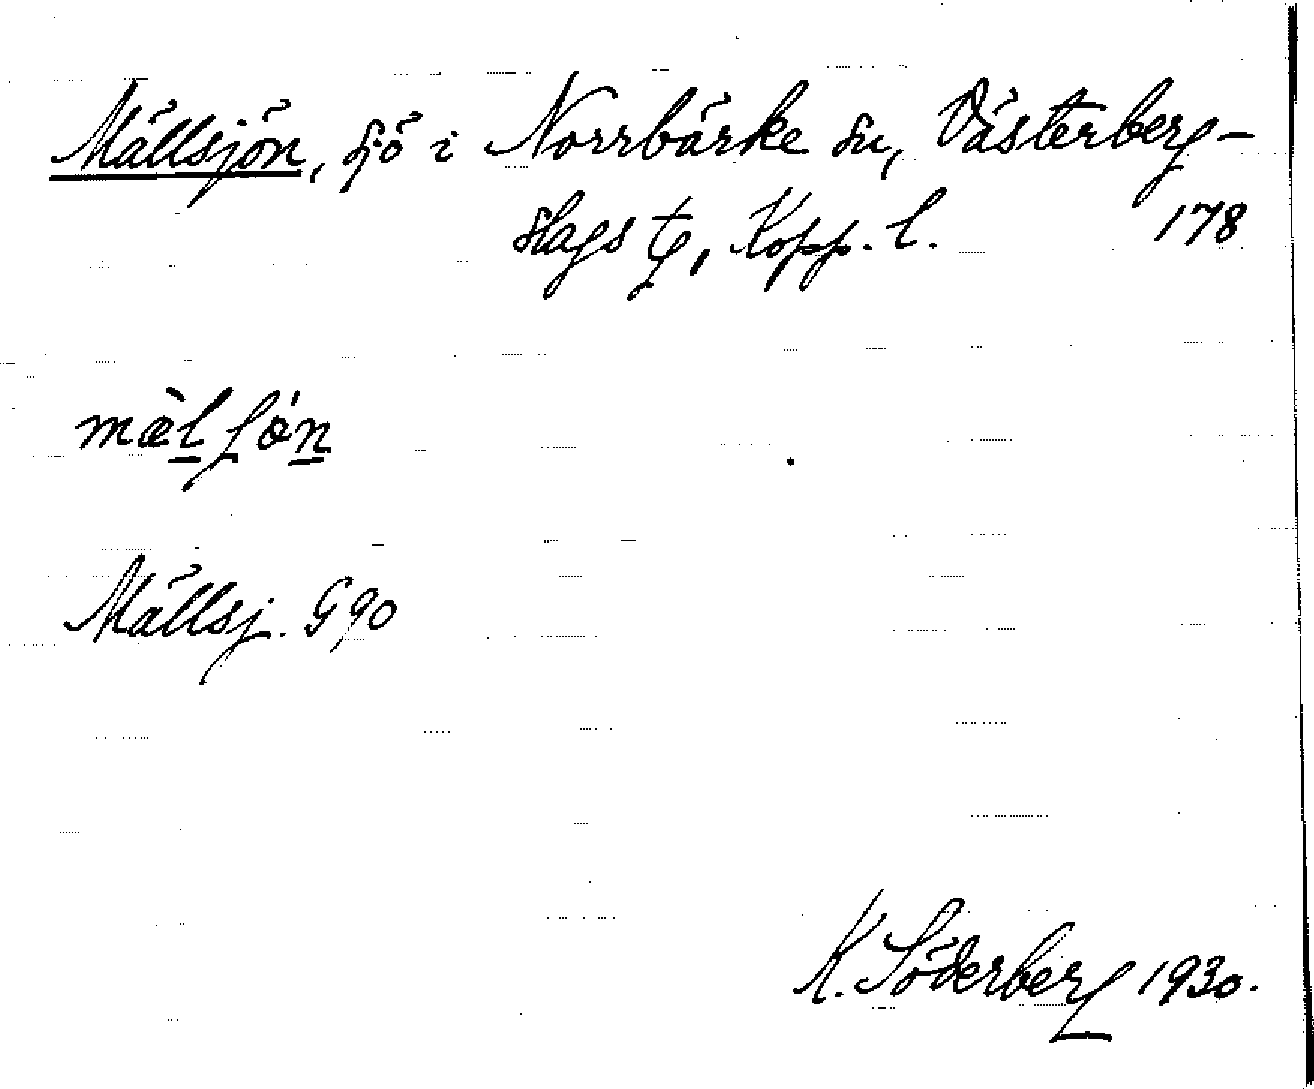 Mällsjön, sjö i Norrbärke sn, Västerberg-
slags tg, Kopp. l. 178
mæ̀l ʃǿn
Mällsj. G 90
K. Söderberg 1930.